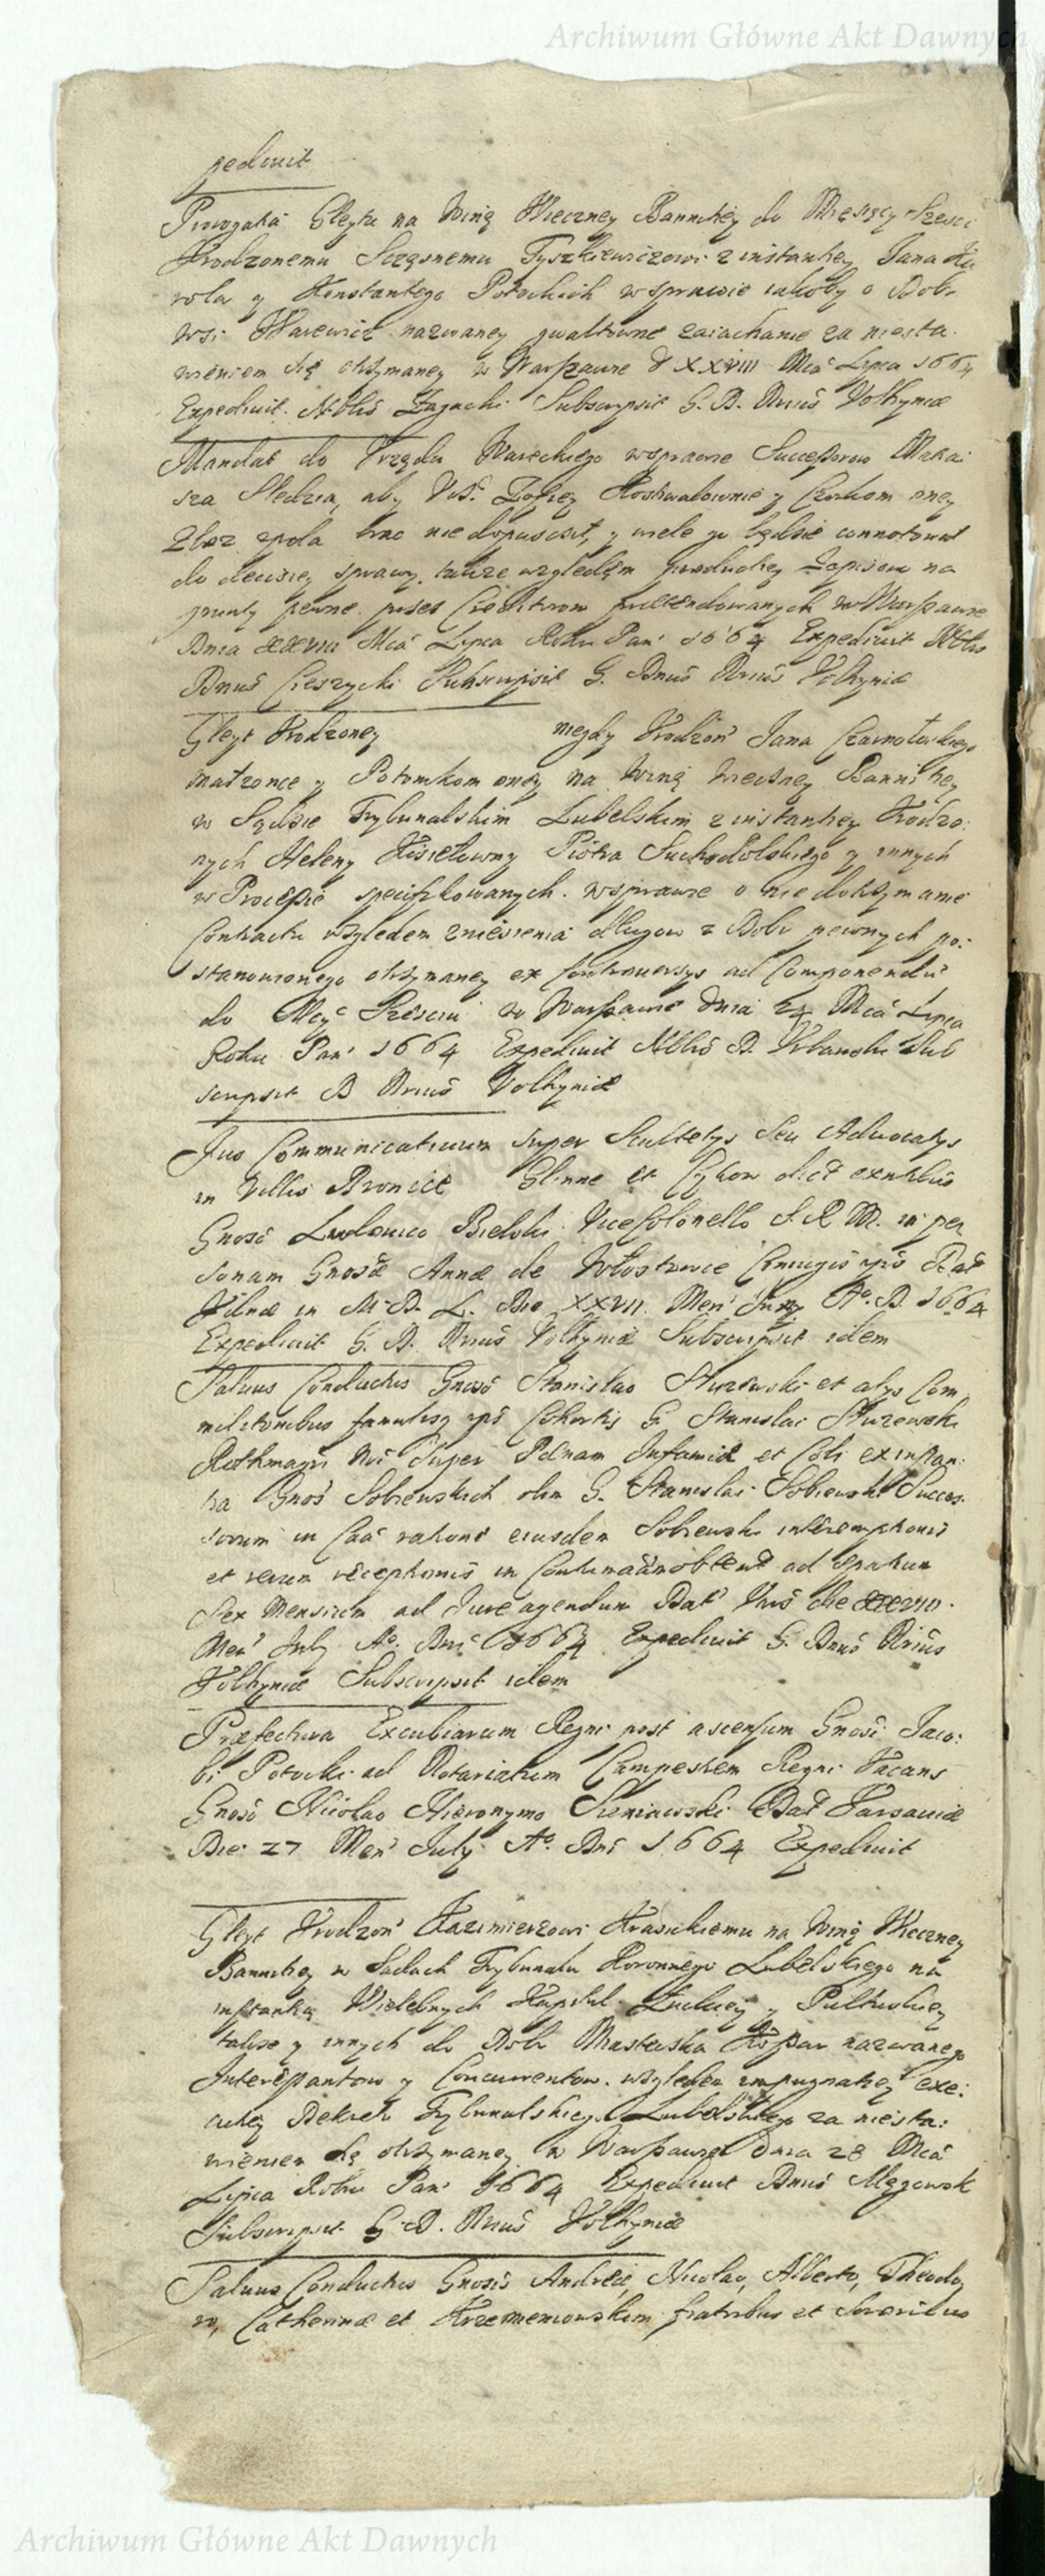 Archiwum Główne Akt Dawnych
pediuit
Prorogatia Gleytu na Winą Wieczney Bannitiey do Miesięcy Szesci
Urodzonemu Tyszkiewiczowi z instantiey Jana Ka
rola y Konstantego Potockich w sprawie iakoby o Dobr
wsi nazwaney gwałtowne zaiachanie za niesta
wieniem się otrzymaney w Warszawie d XXVIII Mca Lipca 1664
Expediuit Nobilis Subscripsit G. D. Volhyniæ
Mandat do Urzędu Wareckiego w sprawie Successorow
sza Sledzia, aby Zofiey y oney
Zboz z pola brac nie dopuscił, y wiele go będzie connotował
do decisiey sprawy, takze względem productiey Zapisow na
grunty pewne przes Creditorow prætendowanych w Warszawie
Dnia XXVIII Mca Lipca Roku Pan 1664 Expediuit Nblis
Dnus Cieszycki Subscripsit G. Dnus Volhyniæ
Gleyt Urodzoney niegdy Urodzon Jana Czarnołuskiego
małzonce y Potomkom oney na Winą Wieczney Bannitiey
w Sądzie Trybunalskim Lubelskim z instantiey Urodzo:
nych Heleny Kisielowny Piotra Suchodolskiego y innych
w Processie specifikowanych w sprawie o nie dotrzymanie
Contractu względem zniesienia długow z Dobr pewnych po:
stanowionego otrzymaney ex Controuersys ad Componendũ
do Mcy Szesciu w Warszawie Dnia 24 Mca Lipca
Roku Pan 1664 Expediuit Nblis D. Urbanski Sub
scripsit D Volhyniæ
Jus Communicatiuum super Scultetys seu Aduocatys
in Villis Bronice Glinne et dict
Gnoso Ludouico Bielski ViceColonello S. R. M. in per
sonam Gnosæ Annæ de Coniugis ipsius Dat
Vilnæ in M. D. L. Die XXVII Men Juny Ao. D. 1664
Expediuit G. D. Volhyniæ Subscripsit idem
Saluus Conductus Gnoso Stanislao et alys Com
militonibus famulisq ips Cohortis G. Stanislai
Rothmagri super Pœnam Infamiæ et Coli ex instan:
tia Gnos Sobiewskich olim G. Stanislai Sobiewski Succes.
sorum in Caa ratione eiusdem Sobiewski interemptionis
et rerum receptionis in obtent ad spatium
Sex Mensium ad Jure agendum Dat die XXVIII
Men July Ao. Dni 1664 Expediuit G. Dnus
Volhyniæ Subscripsit idem
Præfectura Excubiarum Regni post ascensum Gnosi Jaco:
bi Potocki ad Notariatum Campestrem Regni Vacans
Gnoso Nicolao Hieronymo Sieniawski Dat Varsauiæ
Die 27 Men July Ao. Dni 1664 Expediuit
Gleyt Urodzon Kazimierzowi Krasickiemu na Winą Wieczney
Bannitiey w Sadach Trybunału Koronnego Lubelskiego na
instantią Wielebnych Kapituł y Pułtuskiey
takze y innych do Dobr Miasteczka nazwanego
Interessantow y Concurrentow względem impugnatiey exe:
cutiey Dekretu Trybunalskiego Lubelskiego za niesta:
wieniem się otrzymaney w Warszawie Dnia 28 Mca
Lipca Roku Pan 1664 Expediuit Dnus
Subscripsit G. D. Volhyniæ
Saluus Conductus Gnosis Andreæ, Nicolao, Alberto, Theodo
ro, Catherinæ et Krzemieniowskim fratribus et Sororibus
Archiwum Główne Akt Dawnych